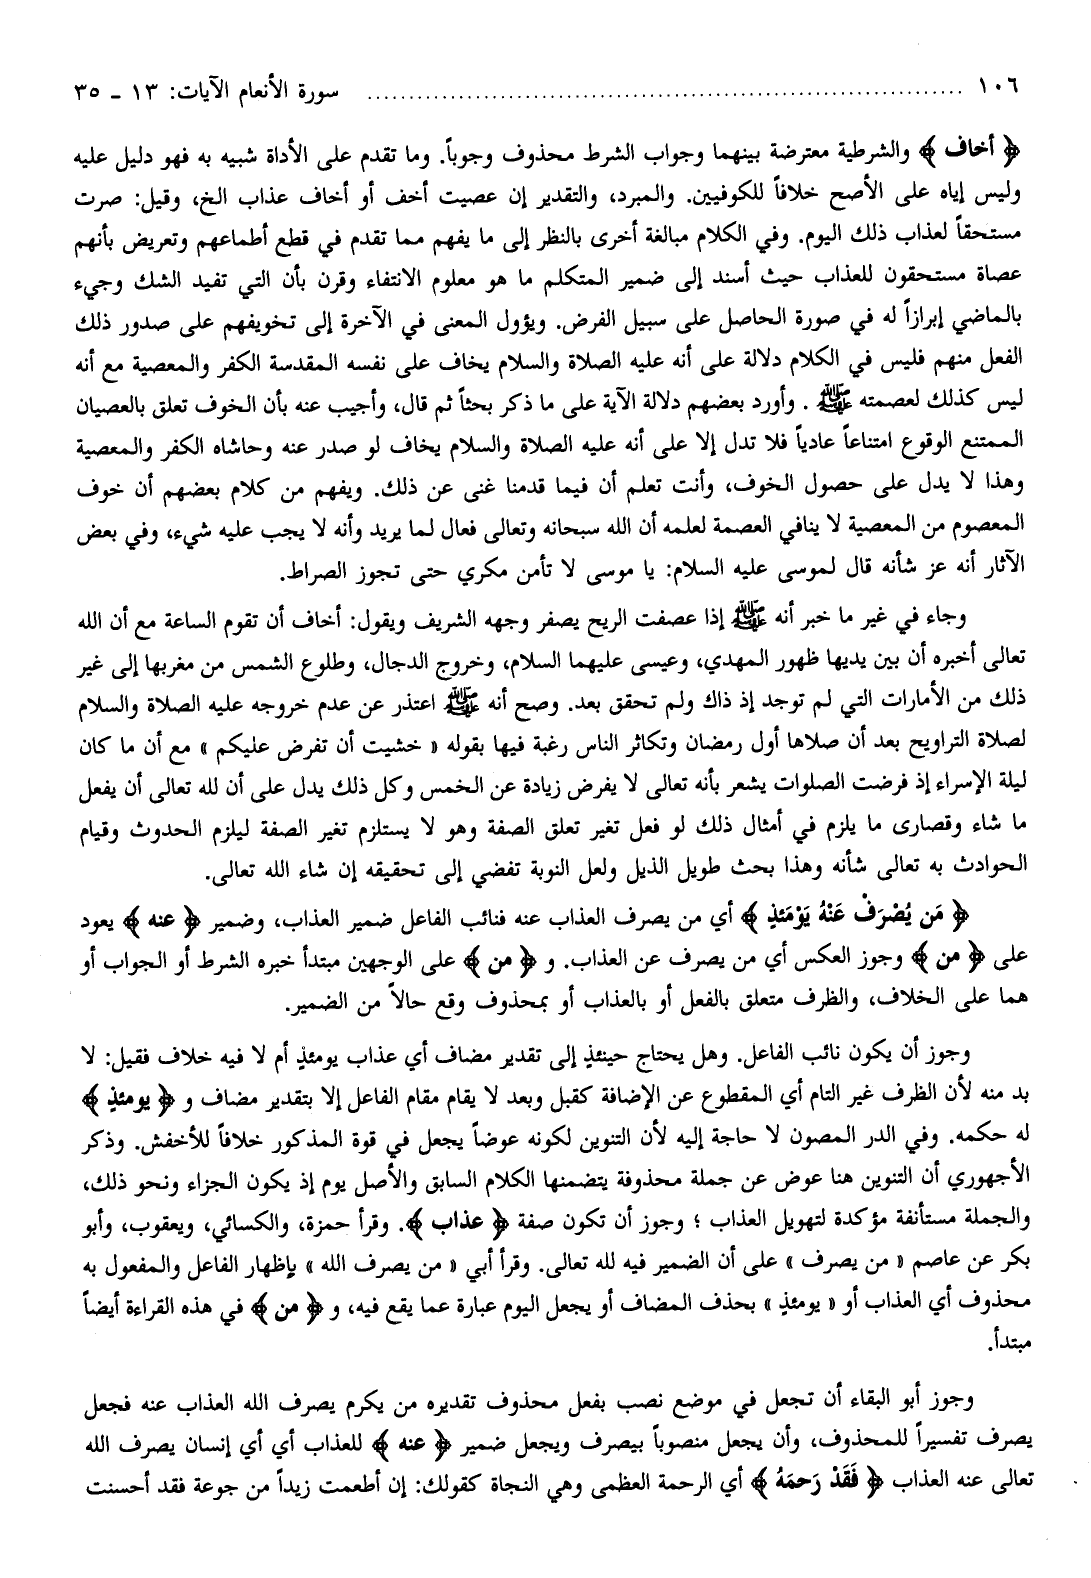 ١٠٦ ........................................................................ سورة الأنعام الآيات: ١٣ - ٣٥
﴿ أخاف ﴾ والشرطية معترضة بينهما وجواب الشرط محذوف وجوباً. وما تقدم على الأداة شبيه به فهو دليل عليه
وليس إياه على الأصح خلافاً للكوفيين. والمبرد، والتقدير إن عصيت أخف أو أخاف عذاب الخ، وقيل: صرت
مستحقاً لعذاب ذلك اليوم. وفي الكلام مبالغة أخرى بالنظر إلى ما يفهم مما تقدم في قطع أطماعهم وتعريض بأنهم
عصاة مستحقون للعذاب حيث أسند إلى ضمير المتكلم ما هو معلوم الانتفاء وقرن بأن التي تفيد الشك وجيء
بالماضي إبرازاً له في صورة الحاصل على سبيل الفرض. ويؤول المعنى في الآخرة إلى تخويفهم على صدور ذلك
الفعل منهم فليس في الكلام دلالة على أنه عليه الصلاة والسلام يخاف على نفسه المقدسة الكفر والمعصية مع أنه
ليس كذلك لعصمته ﷺ . وأورد بعضهم دلالة الآية على ما ذكر بحثاً ثم قال، وأجيب عنه بأن الخوف تعلق بالعصيان
الممتنع الوقوع امتناعاً عادياً فلا تدل إلا على أنه عليه الصلاة والسلام يخاف لو صدر عنه وحاشاه الكفر والمعصية
وهذا لا يدل على حصول الخوف، وأنت تعلم أن فيما قدمنا غنى عن ذلك. ويفهم من كلام بعضهم أن خوف
المعصوم من المعصية لا ينافي العصمة لعلمه أن الله سبحانه وتعالى فعال لما يريد وأنه لا يجب عليه شيء، وفي بعض
الآثار أنه عز شأنه قال لموسى عليه السلام: يا موسى لا تأمن مكري حتى تجوز الصراط.
وجاء في غير ما خبر أنه ﷺ إذا عصفت الريح يصفر وجهه الشريف ويقول: أخاف أن تقوم الساعة مع أن الله
تعالى أخبره أن بين يديها ظهور المهدي، وعيسى عليهما السلام، وخروج الدجال، وطلوع الشمس من مغربها إلى غير
ذلك من الأمارات التي لم توجد إذ ذاك ولم تحقق بعد. وصح أنه ﷺ اعتذر عن عدم خروجه عليه الصلاة والسلام
لصلاة التراويح بعد أن صلاها أول رمضان وتكاثر الناس رغبة فيها بقوله « خشيت أن تفرض عليكم » مع أن ما كان
ليلة الإسراء إذ فرضت الصلوات يشعر بأنه تعالى لا يفرض زيادة عن الخمس وكل ذلك يدل على أن لله تعالى أن يفعل
ما شاء وقصارى ما يلزم في أمثال ذلك لو فعل تغير تعلق الصفة وهو لا يستلزم تغير الصفة ليلزم الحدوث وقيام
الحوادث به تعالى شأنه وهذا بحث طويل الذيل ولعل النوبة تفضي إلى تحقيقه إن شاء الله تعالى.
﴿ مَن يُصْرَفْ عَنْهُ يَوْمَئذٍ ﴾ أي من يصرف العذاب عنه فنائب الفاعل ضمير العذاب، وضمير ﴿ عنه ﴾ يعود
على ﴿ من ﴾ وجوز العكس أي من يصرف عن العذاب. و ﴿ من ﴾ على الوجهين مبتدأ خبره الشرط أو الجواب أو
هما على الخلاف، والظرف متعلق بالفعل أو بالعذاب أو بمحذوف وقع حالاً من الضمير.
وجوز أن يكون نائب الفاعل. وهل يحتاج حينئذٍ إلى تقدير مضاف أي عذاب يومئذٍ أم لا فيه خلاف فقيل: لا
بد منه لأن الظرف غير التام أي المقطوع عن الإضافة كقبل وبعد لا يقام مقام الفاعل إلا بتقدير مضاف و ﴿ يومئذٍ ﴾
له حكمه. وفي الدر المصون لا حاجة إليه لأن التنوين لكونه عوضاً يجعل في قوة المذكور خلافاً للأخفش. وذكر
الأجهوري أن التنوين هنا عوض عن جملة محذوفة يتضمنها الكلام السابق والأصل يوم إذ يكون الجزاء ونحو ذلك،
والجملة مستأنفة مؤكدة لتهويل العذاب ؛ وجوز أن تكون صفة ﴿ عذاب ﴾. وقرأ حمزة، والكسائي، ويعقوب، وأبو
بكر عن عاصم « من يصرف » على أن الضمير فيه لله تعالى. وقرأ أبي « من يصرف الله » بإظهار الفاعل والمفعول به
محذوف أي العذاب أو « يومئذٍ » بحذف المضاف أو يجعل اليوم عبارة عما يقع فيه، و ﴿ من ﴾ في هذه القراءة أيضاً
مبتدأ.
وجوز أبو البقاء أن تجعل في موضع نصب بفعل محذوف تقديره من يكرم يصرف الله العذاب عنه فجعل
يصرف تفسيراً للمحذوف، وأن يجعل منصوباً بيصرف ويجعل ضمير ﴿ عنه ﴾ للعذاب أي أي إنسان يصرف الله
تعالى عنه العذاب ﴿ فَقَدْ رَحمَهُ ﴾ أي الرحمة العظمى وهي النجاة كقولك: إن أطعمت زيداً من جوعة فقد أحسنت